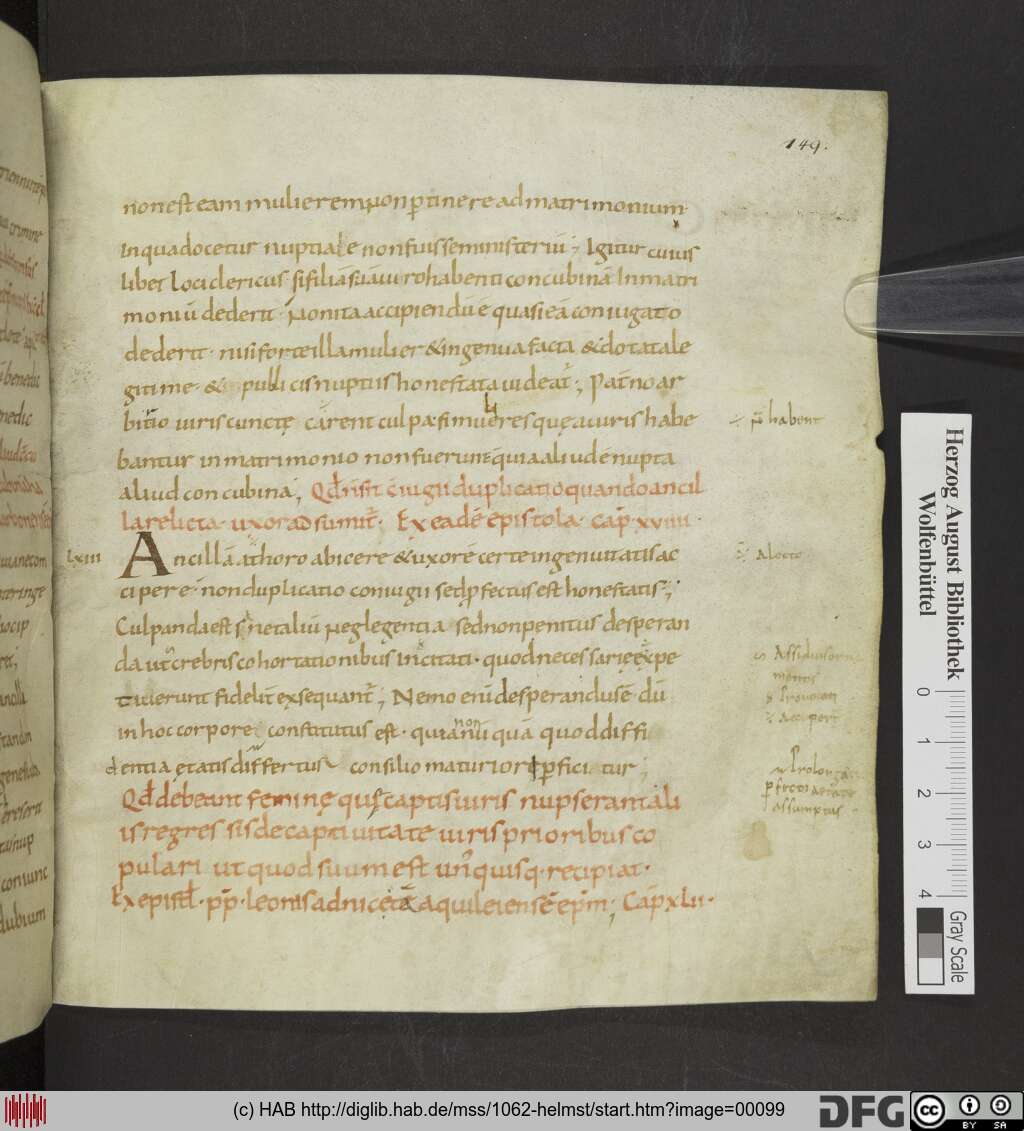 149.
non est eam mulierem non p̄tinere ad matrimonium
In qua docetur nuptiale non fuisse ministeriū; Igitur cuius
libet loci clericus si filiā suā uiro habenti concubinā In matri
moniū dederit. Non ita accipiendū ē quasi eā coniugato
dederit. nisi forte illa mulier & ingenua facta & dotata le
gitime & publicis nuptiis honestata uideat̄; Pat̄no ar
bitrio uiris cunctę carent culpa. si mulieres quę a uiris habe
bantur in matrimonio non fuerunt quia aliud ē nupta
aliud concubina; Qd̄ n̄ sit c̄iugii duplicatio quando ancil
la relicta uxor adsumit̄. Ex eadē epistola. Cap̄ xviiii.
Lxiii Ancillā a thoro abicere & uxorē certe ingenuitatis ac
cipere. non duplicatio coniugii sed p̄fectus est honestatis;
Culpanda est sane taliū neglegentia sed non penitus desperan
da ut crebris cohortationibus Incitati. quod necessarie expe
tiuerunt fidelit̄ exsequant̄; Nemo enī desperandus ē dū
in hoc corpore constitutus est. quia non nū quā quod diffi
dentia ętatis differtur consilio maturiore p̄ficitur;
Qd̄ debeant feminę quę captis uiris nupserant ali
is regressis de captiuitate uiris prioribus co
pulari ut quod suum est un̄quisq. recipiat.
Ex epistl̄. p̄p. leonis ad nicętā aquileiensē ep̄m; Cap̄ xlii.
habent
A lecto
Prolongan
p̄fecti aetate
assumptus
Herzog August Bibliothek
Wolfenbüttel
0 1 2 3 4
Gray Scale
(c) HAB http://diglib.hab.de/mss/1062-helmst/start.htm?image=00099
DFG
cc BY SA